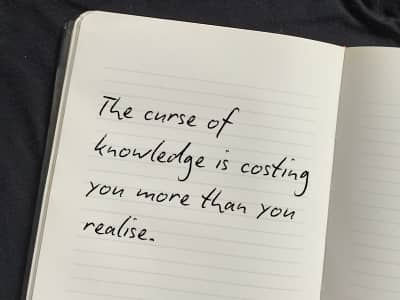 The curse of
knowledge is costing
you more than you
realise.